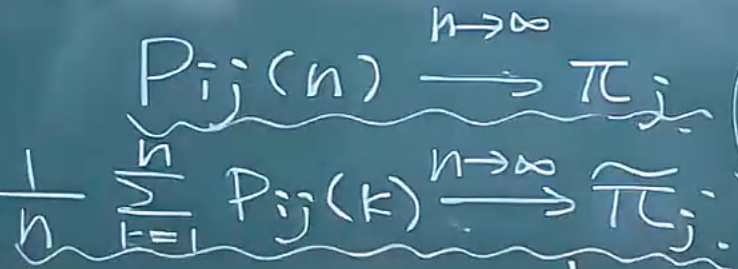 P_{ij}(n) \xrightarrow{n→∞} π_j.
\frac{1}{n} \sum_{k=1}^{n} P_{ij}(k) \xrightarrow{n→∞} \widetilde{π}_j.